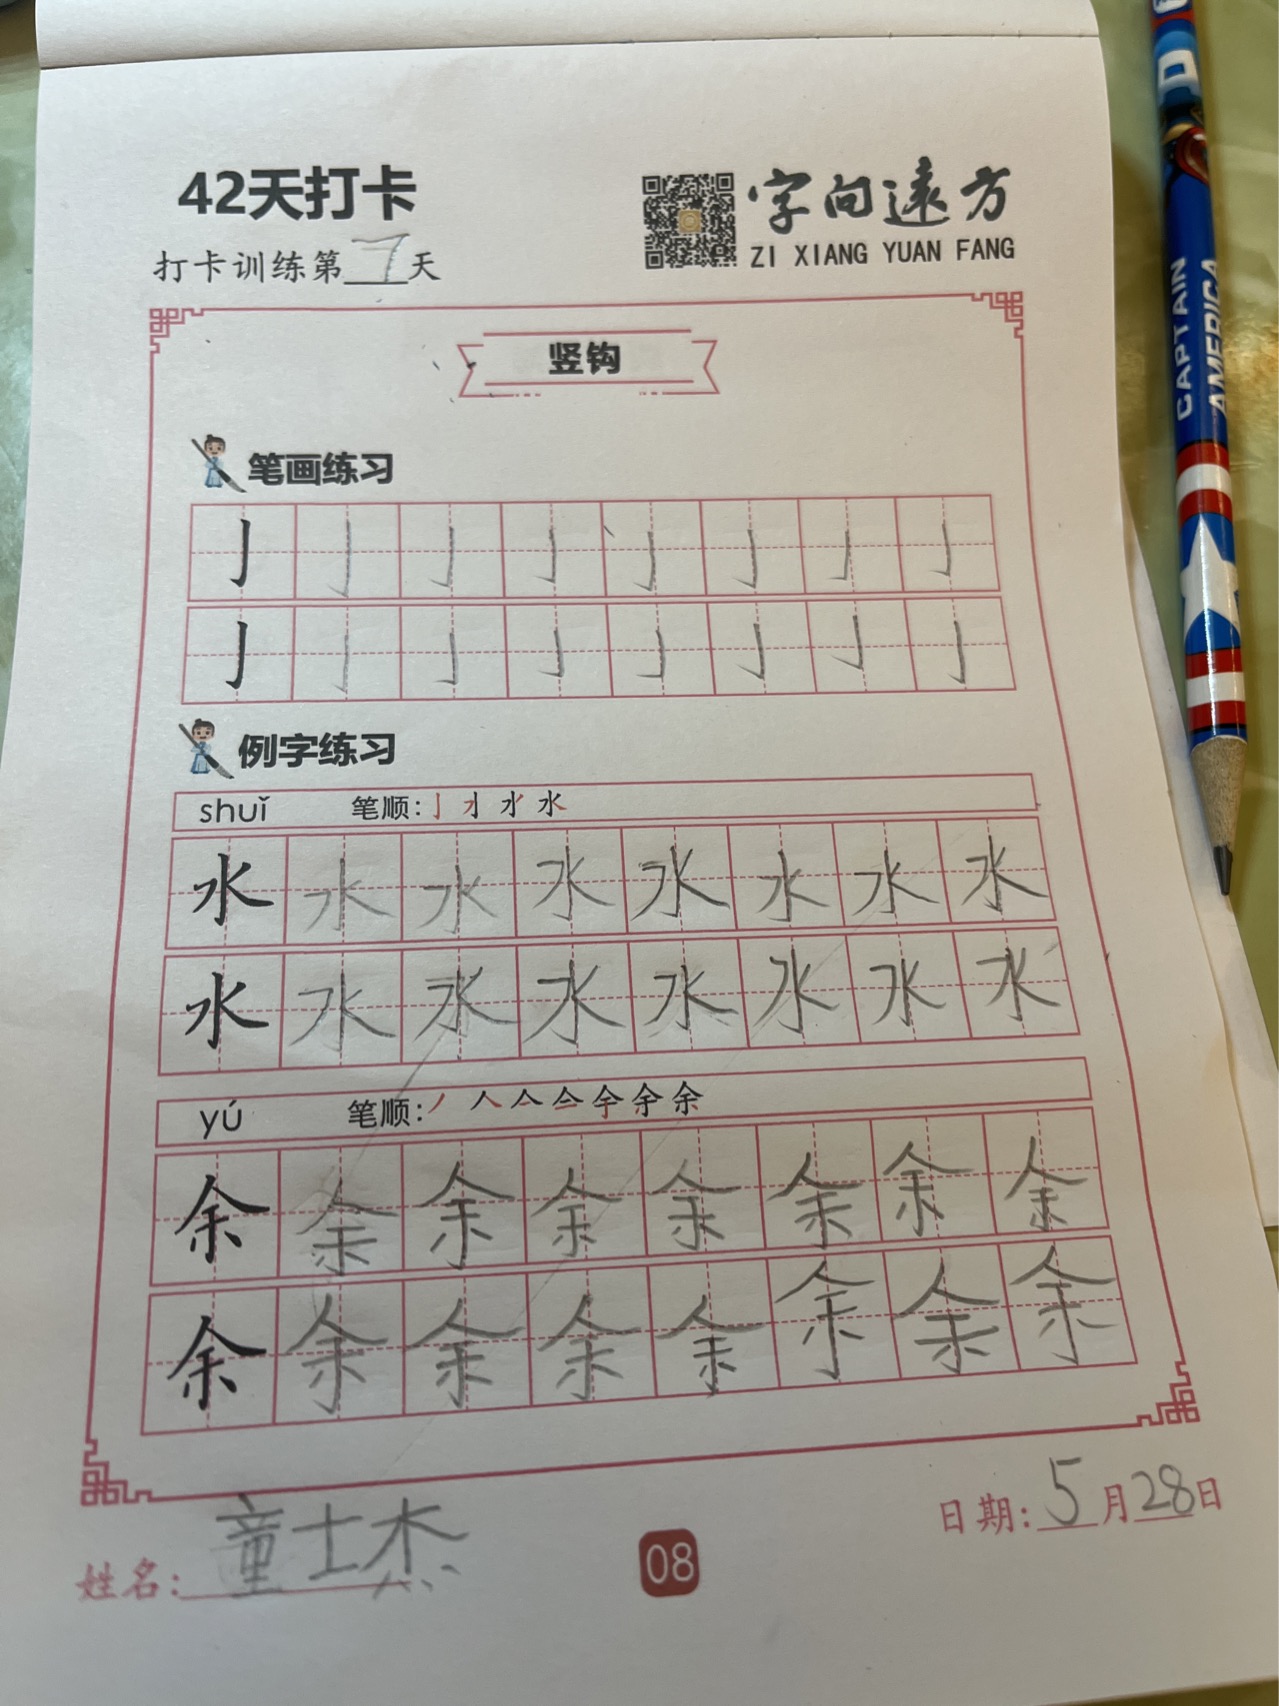 42天打卡
字向远方
打卡训练第7天
ZI XIANG YUAN FANG
竖钩
笔画练习
亅亅亅亅亅亅亅亅
亅亅亅亅亅亅亅亅
例字练习
shuǐ 笔顺:
水水水水水水水水
水水水水水水水水
yú 笔顺:
余余余余余余余余
余余余余余余余余
姓名:童士杰
08
日期:5月28日
CAPTAIN
AMERICA